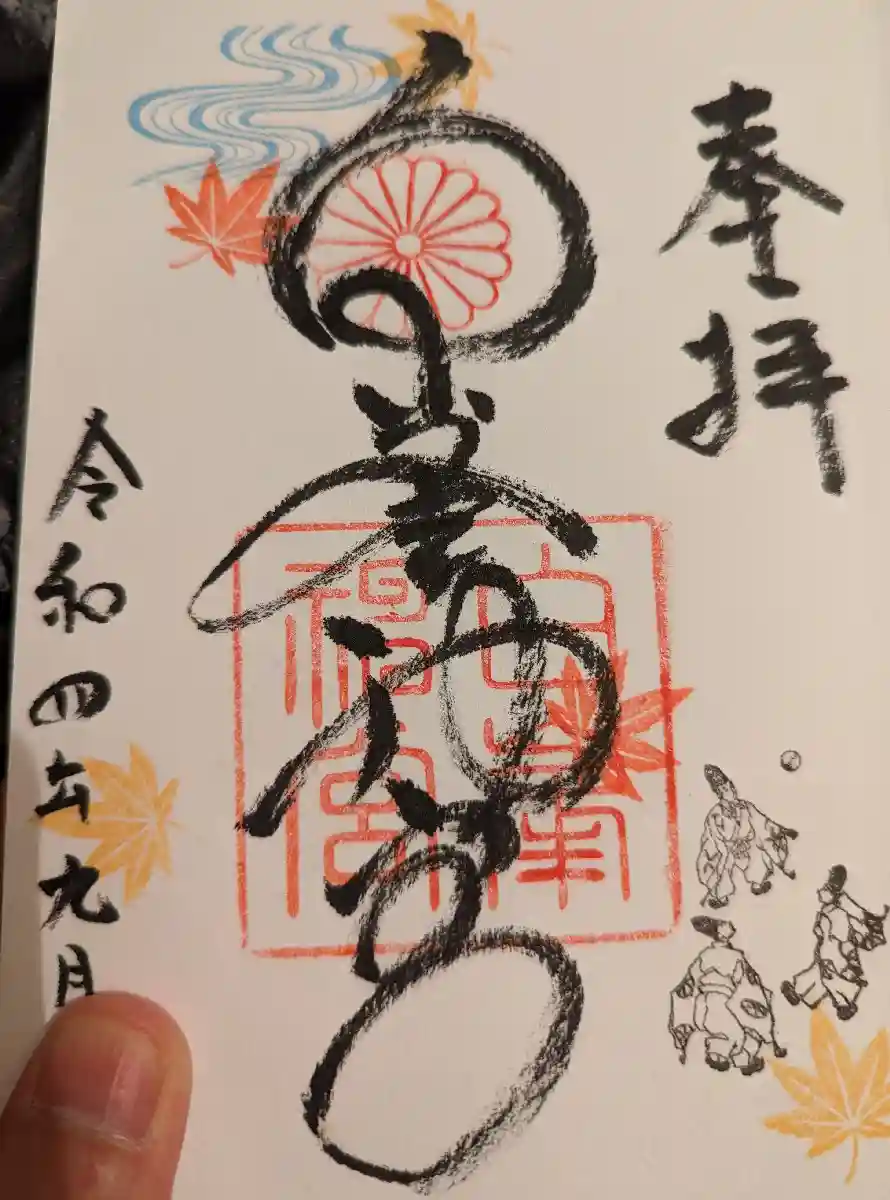 奉拝
白峯神宮
白峯
神宮
令和四年九月